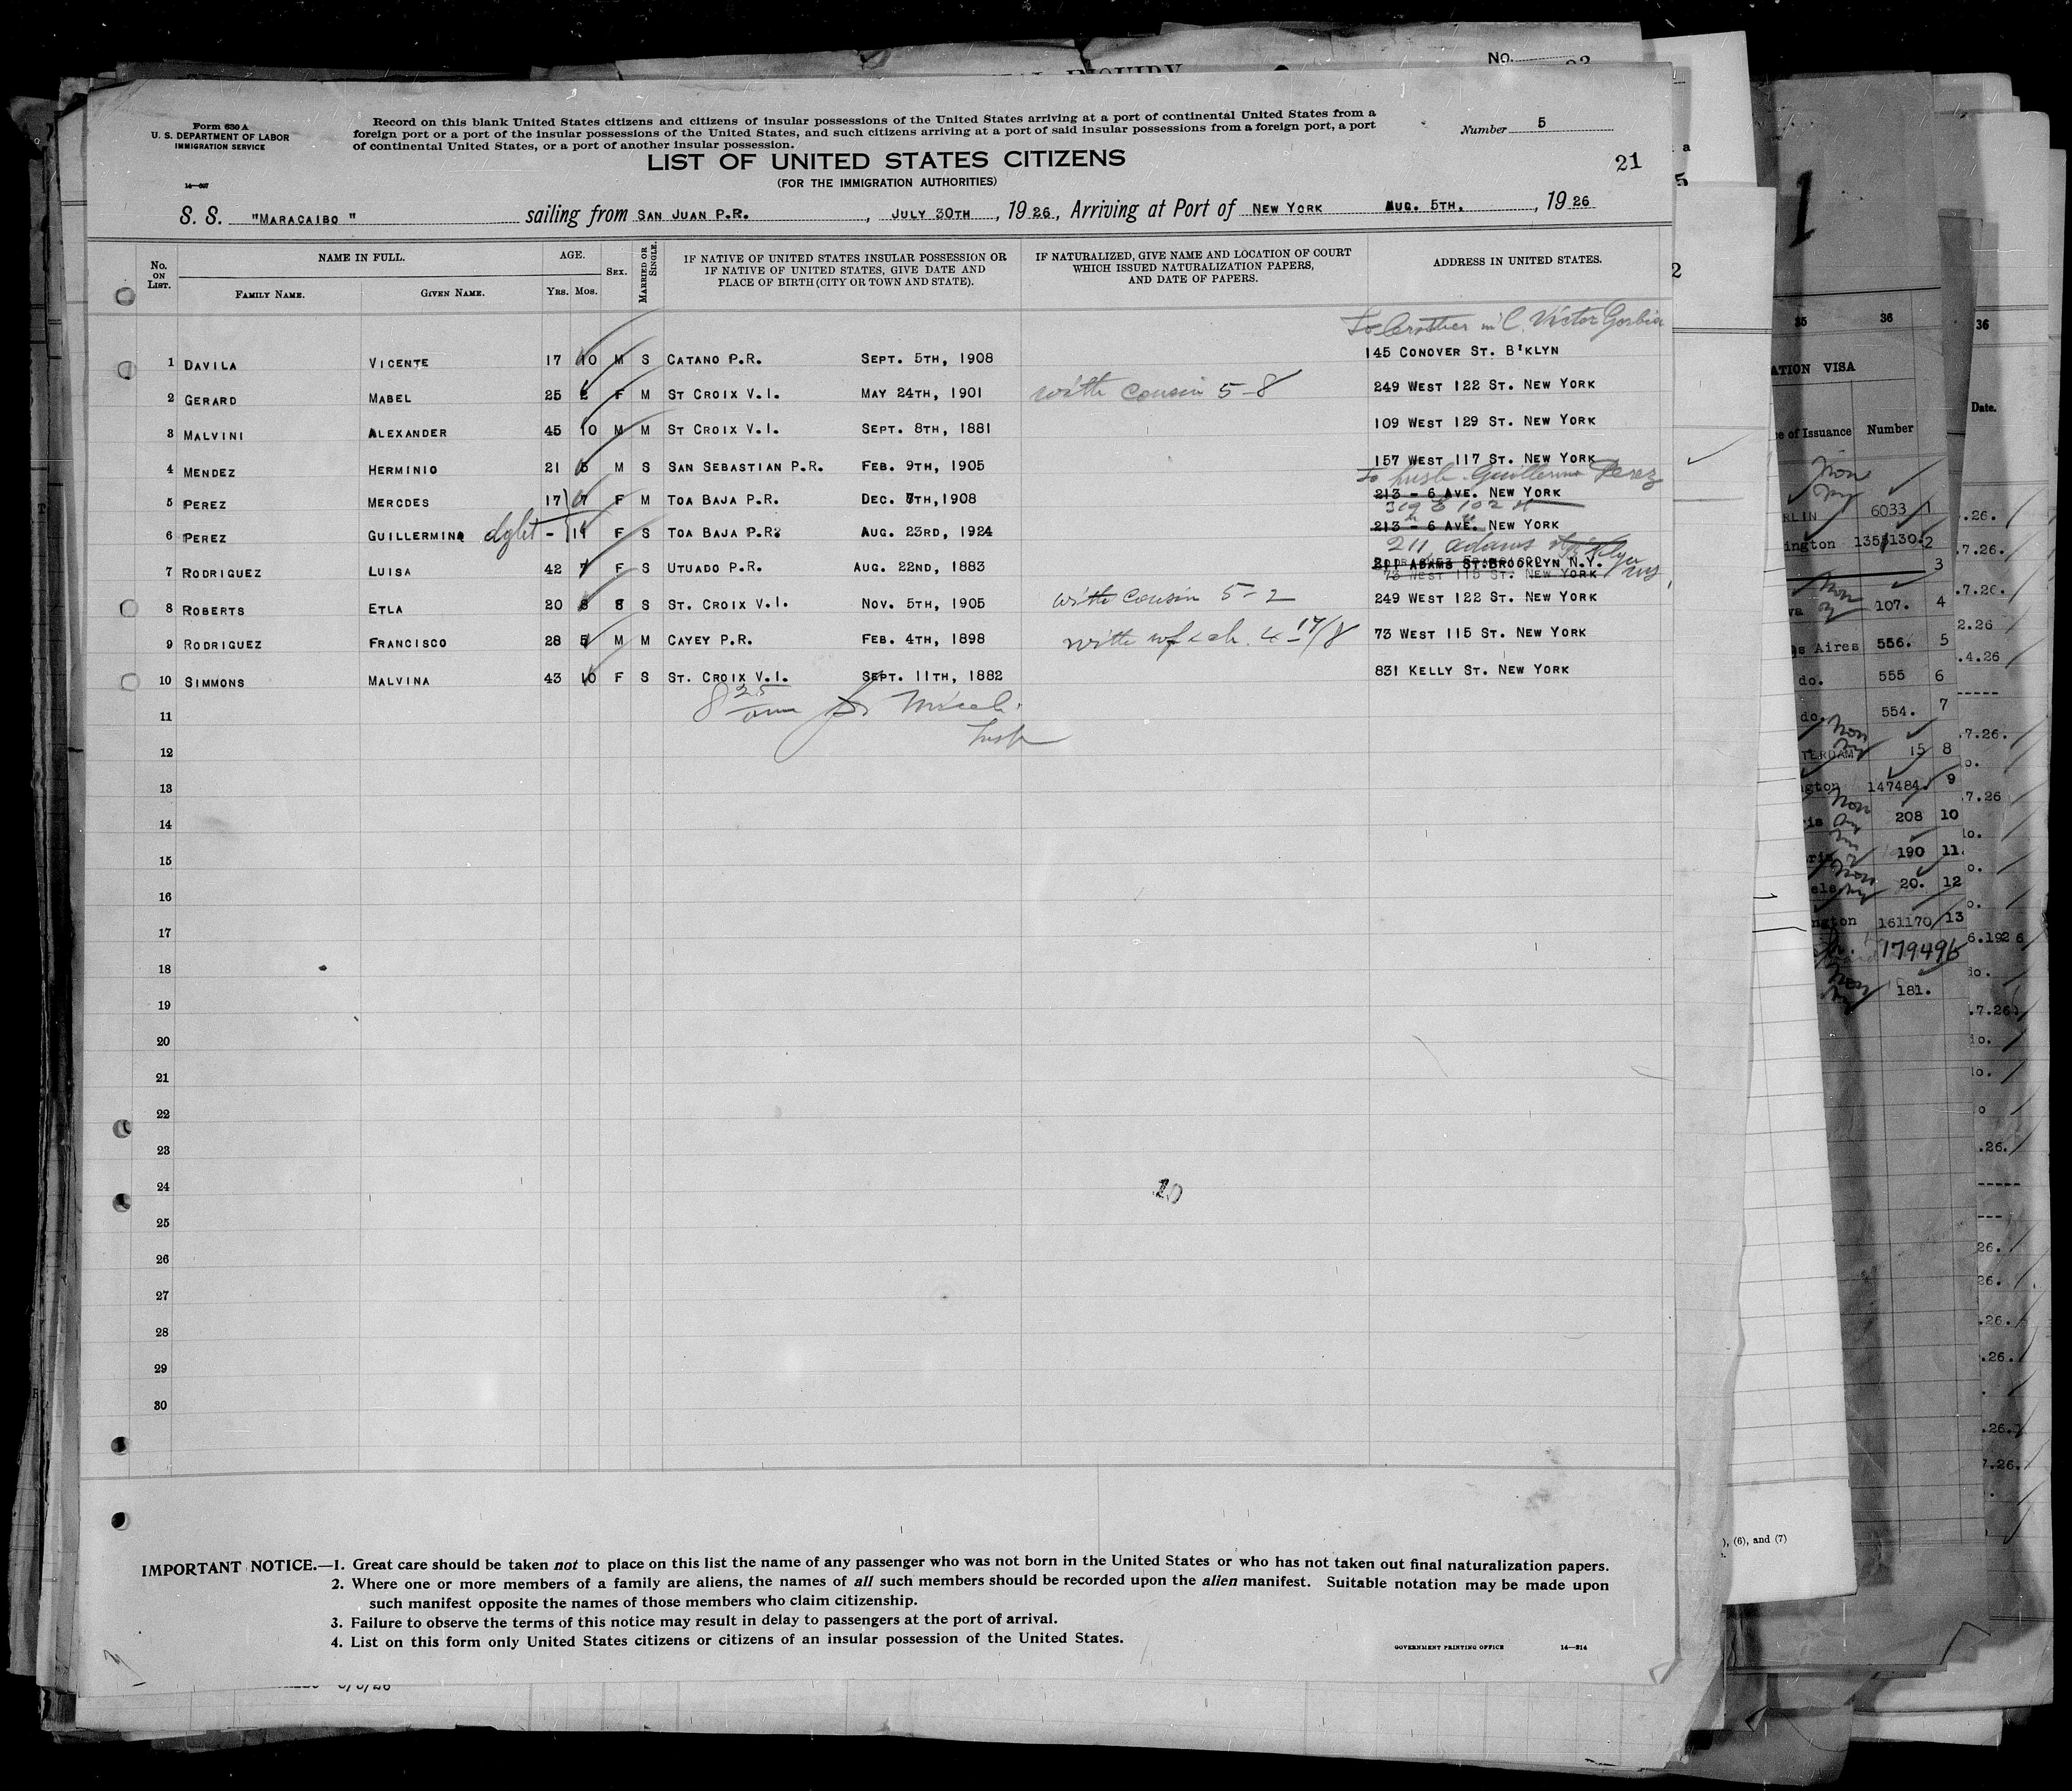 No. 23
Form 630 A
U. S. DEPARTMENT OF LABOR
IMMIGRATION SERVICE
14—687
Record on this blank United States citizens and citizens of insular possessions of the United States arriving at a port of continental United States from a
foreign port or a port of the insular possessions of the United States, and such citizens arriving at a port of said insular possessions from a foreign port, a port
of continental United States, or a port of another insular possession.
Number 5
LIST OF UNITED STATES CITIZENS
21
(FOR THE IMMIGRATION AUTHORITIES)
S. S. "MARACAIBO" sailing from SAN JUAN P.R. , JULY 30TH , 1926, Arriving at Port of NEW YORK AUG. 5TH, , 1926
No. ON LIST. NAME IN FULL. AGE. SEX. MARRIED OR SINGLE. IF NATIVE OF UNITED STATES INSULAR POSSESSION OR IF NATIVE OF UNITED STATES, GIVE DATE AND PLACE OF BIRTH (CITY OR TOWN AND STATE). IF NATURALIZED, GIVE NAME AND LOCATION OF COURT WHICH ISSUED NATURALIZATION PAPERS, AND DATE OF PAPERS. ADDRESS IN UNITED STATES.
FAMILY NAME. GIVEN NAME. YRS. MOS.
To brother in L. Victor
1 DAVILA VICENTE 17 10 M S CATANO P.R. SEPT. 5TH, 1908 145 CONOVER ST. B'KLYN
2 GERARD MABEL 25 2 F M ST CROIX V.I. MAY 24TH, 1901 with cousin 5-8 249 WEST 122 ST. NEW YORK
3 MALVINI ALEXANDER 45 10 M M ST CROIX V.I. SEPT. 8TH, 1881 109 WEST 129 ST. NEW YORK
4 MENDEZ HERMINIO 21 5 M S SAN SEBASTIAN P.R. FEB. 9TH, 1905 157 WEST 117 ST. NEW YORK
To husb. Guillermo Perez
5 PEREZ MERCDES 17 7 F M TOA BAJA P.R. DEC. 8TH, 1908 213 - 6 AVE. NEW YORK
319 E 102 St
6 PEREZ GUILLERMINA - 11 F S TOA BAJA P.R. AUG. 23RD, 1924 213 - 6 AVE. NEW YORK
211 Adams St
7 RODRIGUEZ LUISA 42 7 F S UTUADO P.R. AUG. 22ND, 1883 211 ADAMS ST. BROOKLYN N.Y.
73 WEST 115 ST. NEW YORK
8 ROBERTS ETLA 20 8 S ST. CROIX V.I. NOV. 5TH, 1905 with cousin 5-2 249 WEST 122 ST. NEW YORK
9 RODRIGUEZ FRANCISCO 28 5 M M CAYEY P.R. FEB. 4TH, 1898 with wf & ch. 4-17/8 73 WEST 115 ST. NEW YORK
10 SIMMONS MALVINA 43 10 F S ST. CROIX V.I. SEPT. 11TH, 1882 831 KELLY ST. NEW YORK
11
Insp
12
13
14
15
16
17
18
19
20
21
22
23
24
10
25
26
27
28
29
30
IMPORTANT NOTICE.—1. Great care should be taken not to place on this list the name of any passenger who was not born in the United States or who has not taken out final naturalization papers.
2. Where one or more members of a family are aliens, the names of all such members should be recorded upon the alien manifest. Suitable notation may be made upon
such manifest opposite the names of those members who claim citizenship.
3. Failure to observe the terms of this notice may result in delay to passengers at the port of arrival.
4. List on this form only United States citizens or citizens of an insular possession of the United States.
GOVERNMENT PRINTING OFFICE 14—214
35 36
VISA
of Issuance Number
Date.
6033 1
135130 2
3
107. 4
Aires 556. 5
do. 555 6
do. 554. 7
15 8
147484 9
208 10
190 11
20. 12
161170 13
179496
181.
), (6), and (7)